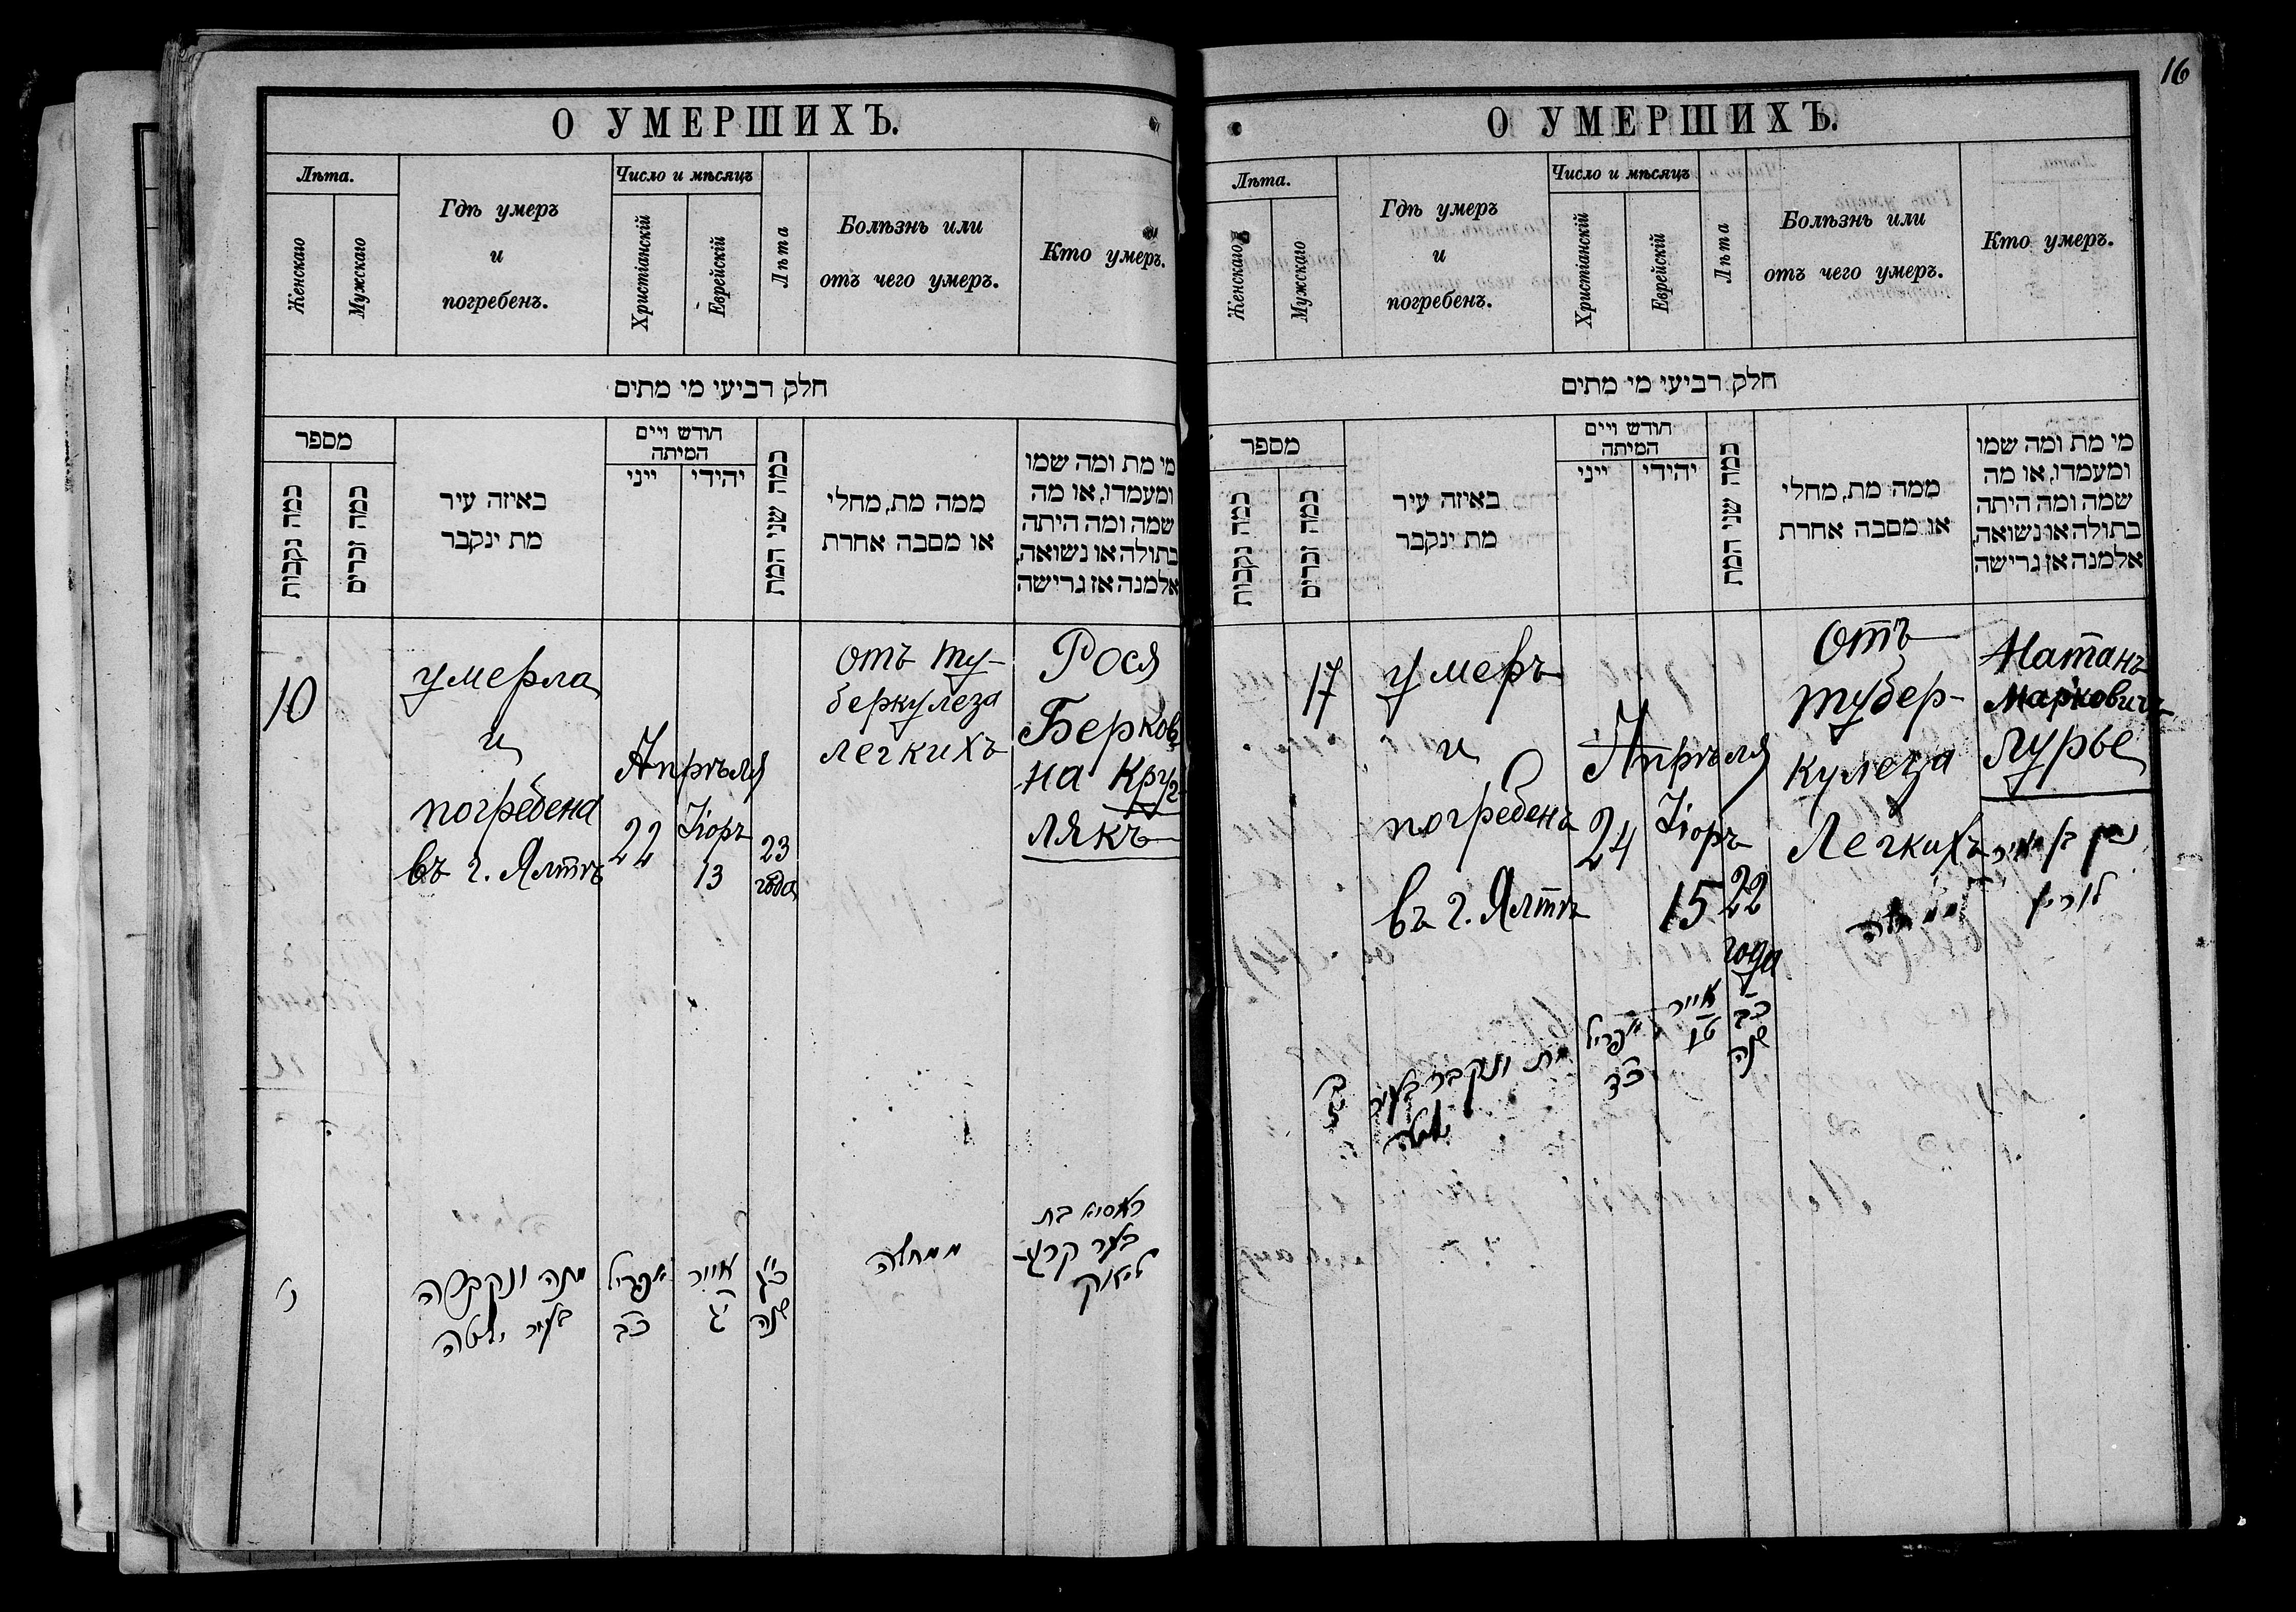 О УМЕРШИХЪ.
Лѣта.
Женскаго
Мужскаго
Гдѣ умеръ
и
погребенъ.
Число и мѣсяцъ
Христіанскій
Еврейскій
Лѣта
Болѣзнь или
отъ чего умеръ.
Кто умеръ.
חלק רביעי מי מתים
מספר
כמה נקבות
כמה זכרים
באיזה עיר
מת ינקבר
חודש ויים
המיתה
ייני
יהידי
כמה שני המת
ממה מת, מחלי
או מסבה אחרת
מי מת ומה שמו
ומעמדו, או מה
שמה ומה היתה
בתולה או נשואה,
אלמנה אז גרישה
10
умерла
и
погребена
въ г. Ялтѣ
Апрѣля
22
Іюръ
13
23
года
отъ ту-
беркулеза
легкихъ
Рося
Берков
на Круг
лякъ
י
מתה ונקברה
בעיר יאלטה
אפריל
כב
אייר
יג
כג
שנה
ממחלה
ראסיא בת
בער קרוג-
ליאק
16
О УМЕРШИХЪ.
Лѣта.
Женскаго
Мужскаго
Гдѣ умеръ
и
погребенъ.
Число и мѣсяцъ
Христіанскій
Еврейскій
Лѣта
Болѣзнь или
отъ чего умеръ.
Кто умеръ.
חלק רביעי מי מתים
מספר
כמה נקבות
כמה זכרים
באיזה עיר
מת ינקבר
חודש ויים
המיתה
ייני
יהידי
כמה שני המת
ממה מת, מחלי
או מסבה אחרת
מי מת ומה שמו
ומעמדו, או מה
שמה ומה היתה
בתולה או נשואה,
אלמנה אן גרישה
17
умеръ
и
погребенъ
въ г. Ялтѣ
Апрѣля
24
Іюръ
15
22
года
отъ
тубер-
кулеза
Легкихъ
Натанъ
Марковичъ
Лурье
נתן בן מאיר
לוריא
ממחלה
יז
מת ונקבר בעיר
יאלטה
אפריל
כד
אייר
טו
כב
שנה